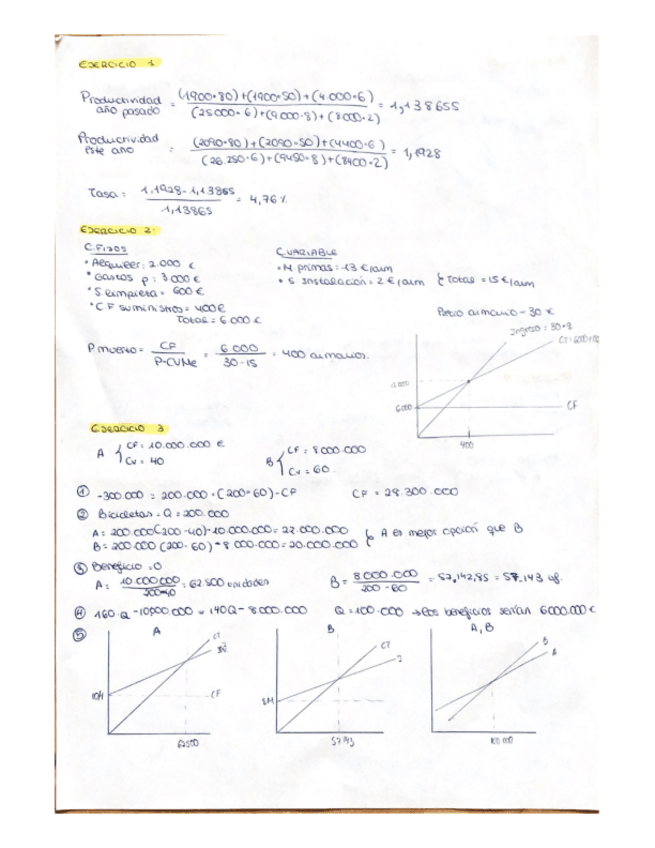 EJERCICIO 1
Productividad año pasado = (1900·80)+(1900·50)+(4.000·6) / (25000·6)+(9.000·8)+(8000·2) = 1,138655
Productividad este año = (2090·80)+(2090·50)+(4400·6) / (26.250·6)+(9450·8)+(8400·2) = 1,1928
Tasa = 1,1928-1,13865 / 1,13865 = 4,76%
EJERCICIO 2:
C.FIJOS
• Alquiler: 2.000 €
• Gastos p: 3000€
• S limpieza = 600€
• C.F suministros = 400€
Total = 6000€
C.VARIABLE
• M. primas = 13 €/arm
• S Instalación = 2 €/arm } Total = 15€/arm
Precio armario - 30 €
P muerto = CF / P-CVMe = 6000 / 30-15 = 400 armarios.
CF
6000
400
EJERCICIO 3
A { CF = 10.000.000 €
Cv = 40
B { CF = 8000.000
Cv = 60
① -300.000 = 200.000 · (200-60)-CF CF = 28.300.000
② Bicicletas = Q = 200.000
A = 200.000(200-40)-10.000.000 = 22.000.000
B = 200.000(200-60)-8000.000 = 20.000.000 } A es mejor opción que B
③ Beneficio = 0
A = 10.000.000 / 200-40 = 62.500 unidades
B = 8000.000 / 200-60 = 57.142,85 = 57.143
④ 160·Q -10000.000 = 140Q - 8000.000 Q = 100.000 → los beneficios serían 6000.000 €
⑤ A
CT
CF
62500
B
CT
8M
57143
A, B
B
A
100.000